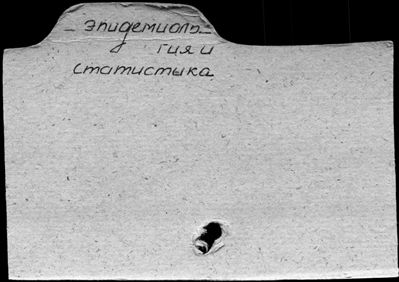 - Эпидемиоль-
гия и
статистыка